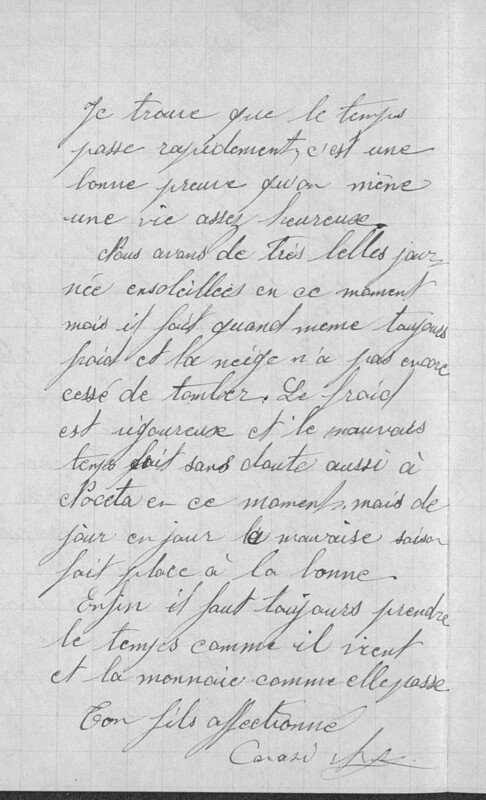 Je trouve que le temps
passe rapidement, c'est une
bonne preuve qu'on mène
une vie assez heureuse.
Nous avons de très belles jour-
née ensoleillées en ce moment
mais il fait quand meme toujours
froid et la neige n'a pas encore
cessé de tomber. Le froid
est rigoureux et le mauvais
temps fait sans doute aussi à
Noceta en ce moment, mais de
jour en jour la mauvaise saison
fait place à la bonne.
Enfin il faut toujours prendre
le temps comme il vient
et la monnaie comme elle passe
Ton fils affectionné
Carasi